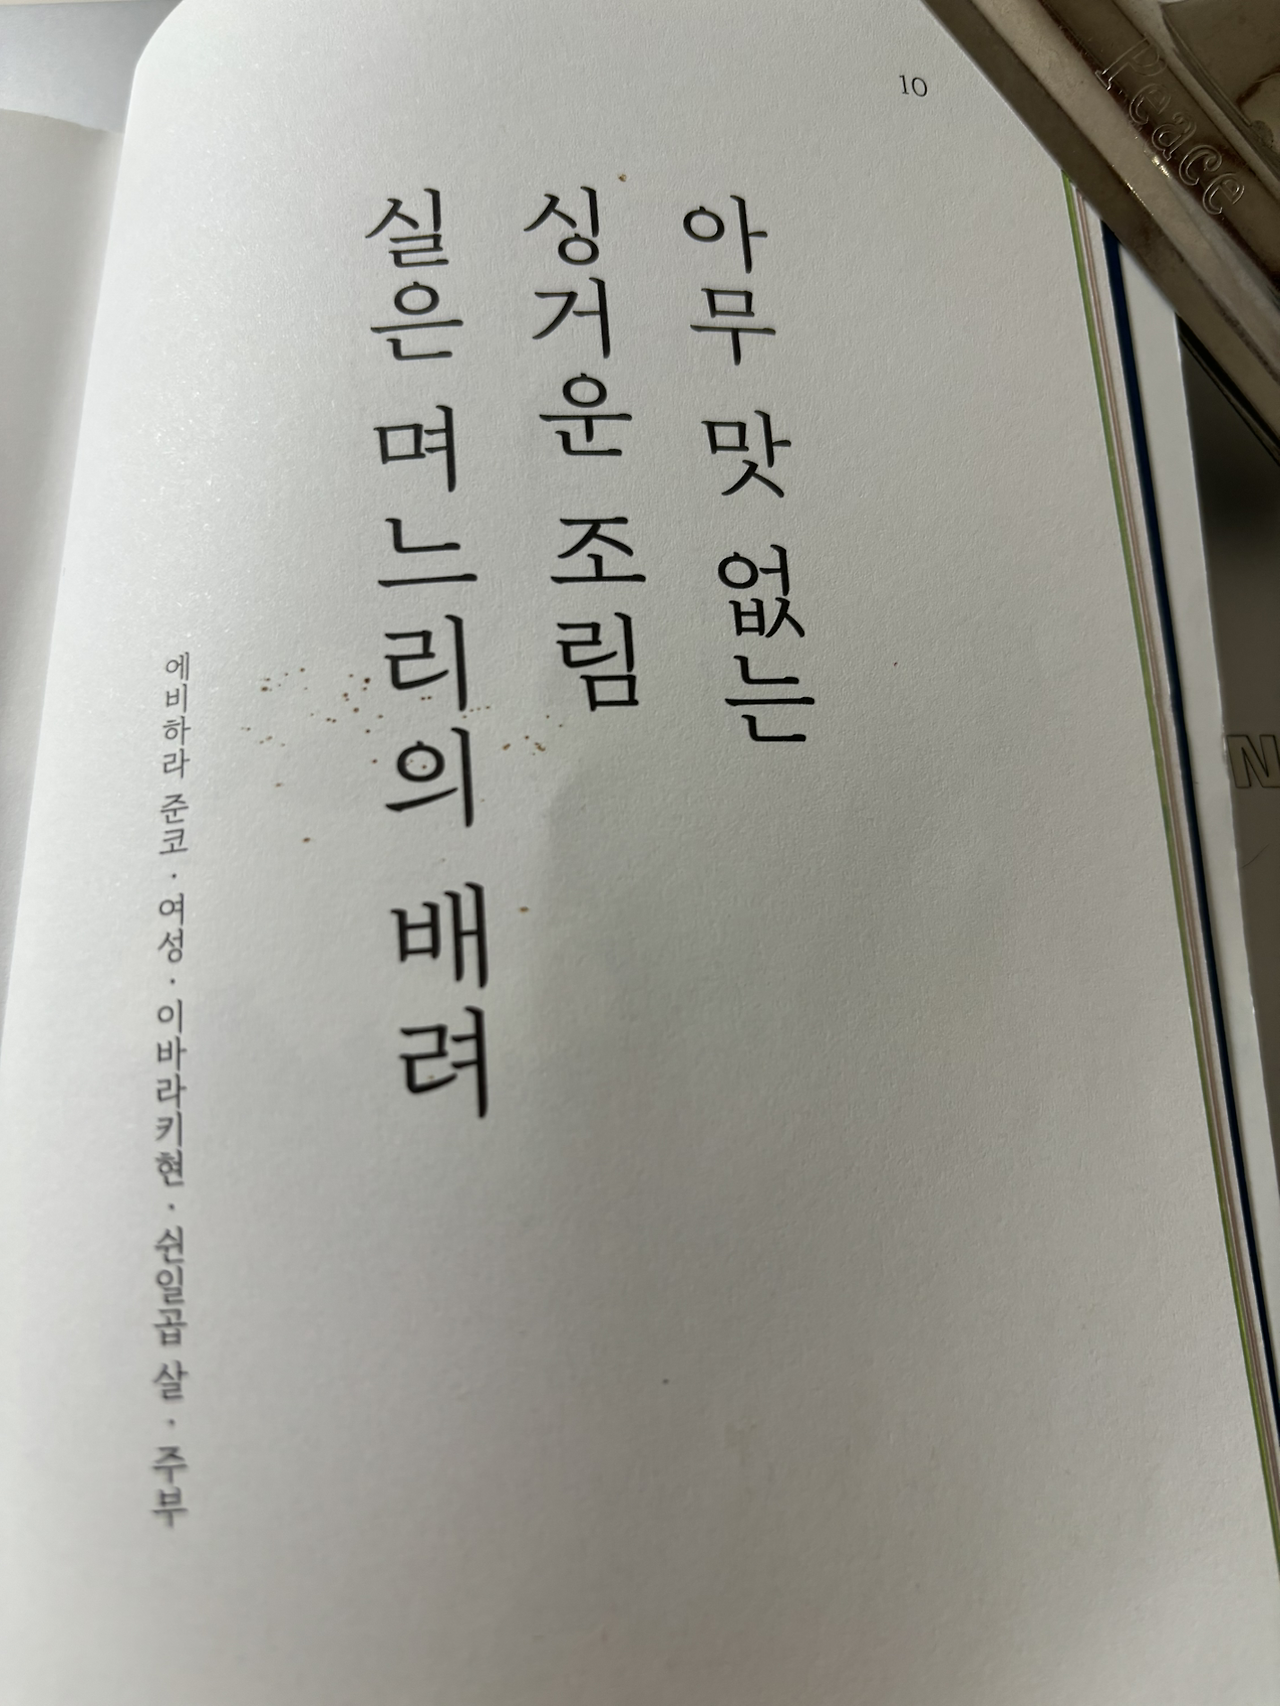 10
아무 맛 없는
싱거운 조림
실은 며느리의 배려
에비하라 준코 · 여성 · 이바라키현 · 쉰일곱 살 · 주부
Peace
N